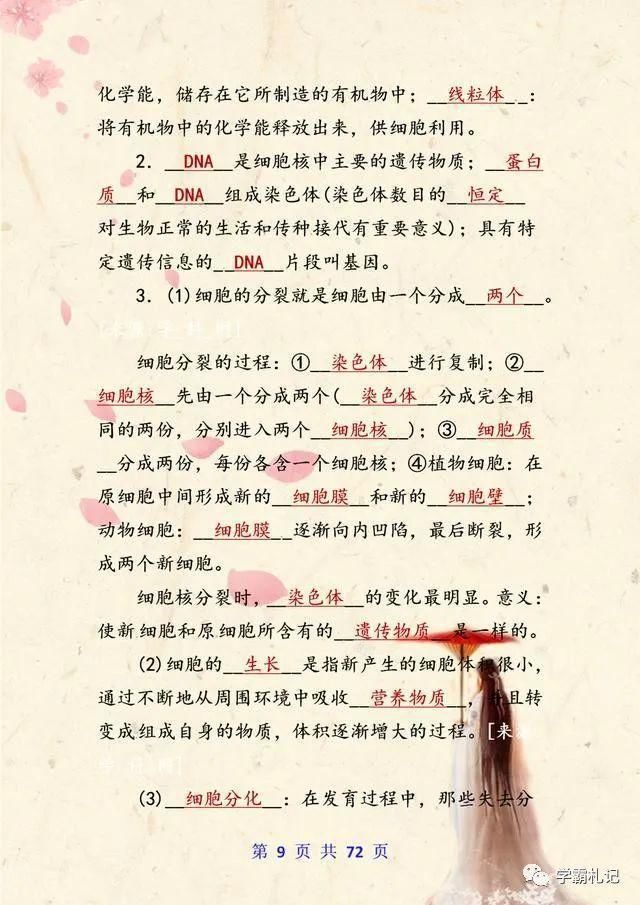 化学能，储存在它所制造的有机物中；__线粒体__：
将有机物中的化学能释放出来，供细胞利用。
2．__DNA__是细胞核中主要的遗传物质；__蛋白
质__和__DNA__组成染色体(染色体数目的__恒定__
对生物正常的生活和传种接代有重要意义)；具有特
定遗传信息的__DNA__片段叫基因。
3．(1)细胞的分裂就是细胞由一个分成__两个__。
[来源:学.科.网]
细胞分裂的过程：①__染色体__进行复制；②__
细胞核__先由一个分成两个(__染色体__分成完全相
同的两份，分别进入两个__细胞核__)；③__细胞质
__分成两份，每份各含一个细胞核；④植物细胞：在
原细胞中间形成新的__细胞膜__和新的__细胞壁__；
动物细胞：__细胞膜__逐渐向内凹陷，最后断裂，形
成两个新细胞。
细胞核分裂时，__染色体__的变化最明显。意义：
使新细胞和原细胞所含有的__遗传物质__是一样的。
(2)细胞的__生长__是指新产生的细胞体积很小，
通过不断地从周围环境中吸收__营养物质__，并且转
变成组成自身的物质，体积逐渐增大的过程。[来源:
学.科.网]
(3)__细胞分化__：在发育过程中，那些失去分
第 9 页 共 72 页
学霸札记